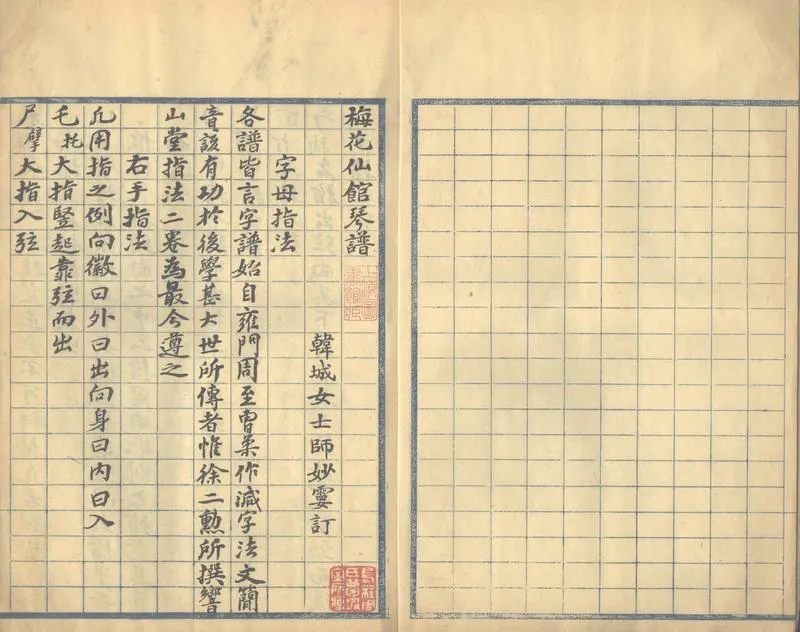 梅花仙館琴譜
韓城女士師妙雯訂
字母指法
各譜皆言字譜始自雍門周至曹柔作減字法文簡
音該有功於後學甚大世所傳者惟徐二勲所撰響
山堂指法二卷為最今遵之
右手指法
凢用指之例向徽曰外曰出向身曰内曰入
乇托大指豎起靠弦而出
尸擘大指入弦